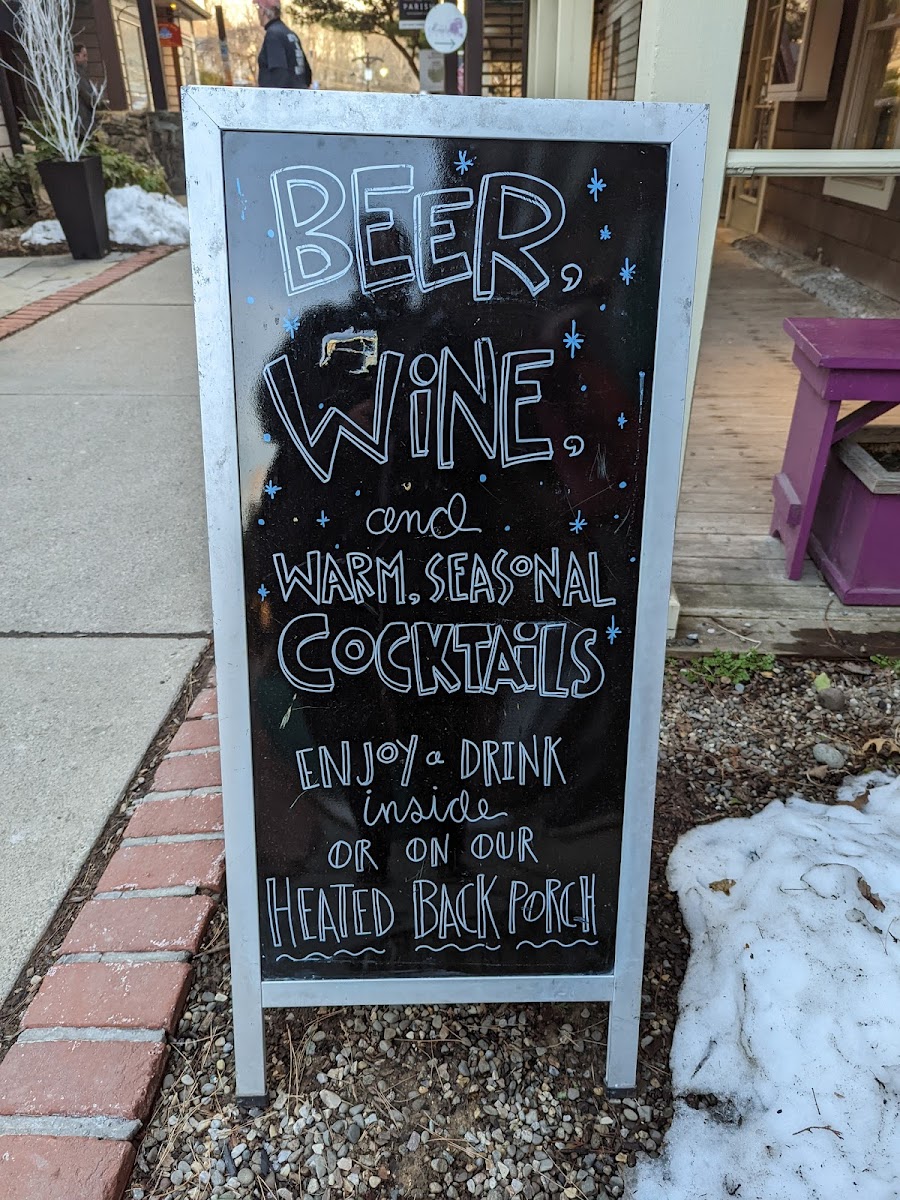 PARISH
BEER,
WINE,
and
WARM, SEASONAL
COCKTAILS
ENJOY a DRINK
inside
OR ON OUR
HEATED BACK PORCH